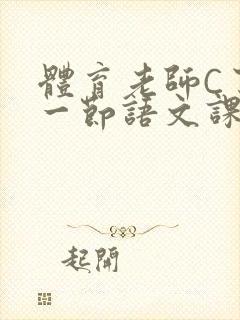 體育老師C了
一節語文課
起開